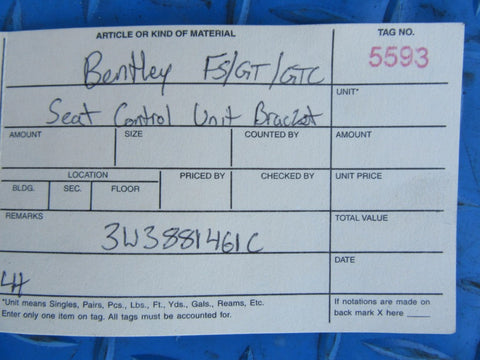 ARTICLE OR KIND OF MATERIAL
TAG NO.
Bentley FS/GT/GTC
5593
UNIT*
Seat Control Unit Bracket
AMOUNT SIZE COUNTED BY AMOUNT
LOCATION PRICED BY CHECKED BY UNIT PRICE
BLDG. SEC. FLOOR
REMARKS TOTAL VALUE
3W3881461C
DATE
LH
*Unit means Singles, Pairs, Pcs., Lbs., Ft., Yds., Gals., Reams, Etc.
Enter only one item on tag. All tags must be accounted for.
If notations are made on
back mark X here